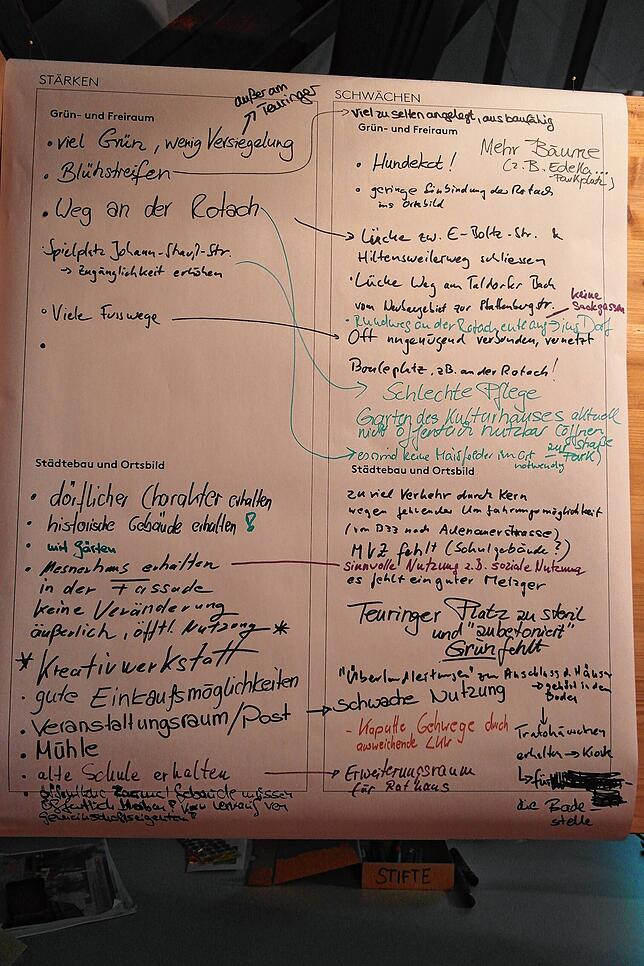 STÄRKEN
Grün- und Freiraum
außer am
Teuringer
• viel Grün, wenig Versiegelung
• Blühstreifen
• Weg an der Rotach
Spielplatz Johann-Strauß-Str.
→ Zugänglichkeit erhöhen
• Viele Fusswege
•
Städtebau und Ortsbild
• dörflicher Charakter erhalten
• historische Gebäude erhalten !
• mit Gärten
• Mesnerhaus erhalten
in der Fassade
keine Veränderung
äußerlich, öfftl. Nutzung *
* Kreativwerkstatt
• gute Einkaufsmöglichkeiten
• Veranstaltungsraum/Post
• Mühle
• alte Schule erhalten
• öffentliche Gebäude müssen
öffentlich bleiben! Kein Verkauf von
Gemeinschaftseigentum!
SCHWÄCHEN
viel zu selten angelegt, ausbaufähig
Grün- und Freiraum
Mehr Bäume
(z.B. Edeka...
Parkplatz)
• Hundekot!
• geringe Einbindung der Rotach
ins Ortsbild
Lücke zw. E-Boltz-Str. &
Hiltensweilerweg schliessen
• Lücke Weg am Taldorfer Bach
vom Neubaugebiet zur Plattenbergstr.
keine
Sackgassen
• Rundweg an der Rotach entlang → ins Dorf
Oft ungenügend verbunden, vernetzt
Bouleplatz, z.B. an der Rotach!
Schlechte Pflege
Garten des Kulturhauses aktuell
nicht öffentlich nutzbar (öffnen
zur Straße
Park)
es sind keine Maisfelder im Ort
notwendig
Städtebau und Ortsbild
zu viel Verkehr durch Kern
wegen fehlender Umfahrungsmöglichkeit
(von B33 nach Adenauerstrasse)
MVZ fehlt (Schulgebäude?)
sinnvolle Nutzung z.B. soziale Nutzung
es fehlt ein guter Metzger
Teuringer Platz zu steril
und "zubetoniert"
Grün fehlt
"Überlandleitungen" zum Anschluss d. Häuser
→ gehört in den
Boden
Schwache Nutzung
- Kaputte Gehwege durch
ausweichende LKW
Trafohäuschen
erhalten → Kiosk
↳ für
die Bade-
stelle
Erweiterungsraum
für Rathaus
STIFTE